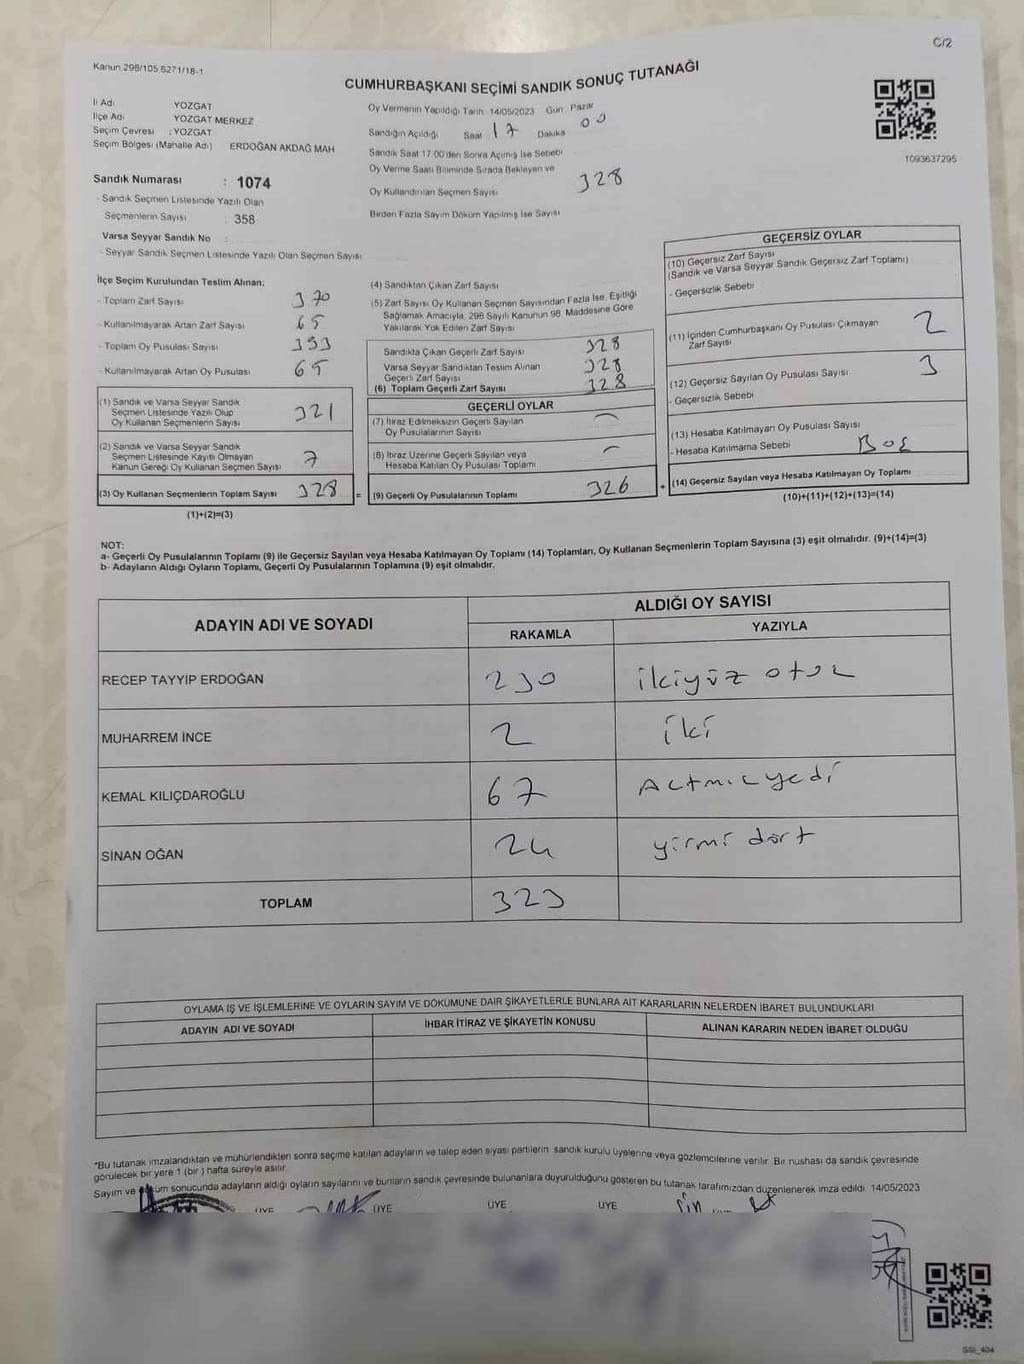 C/2
Kanun.298/105.6271/18-1
CUMHURBAŞKANI SEÇİMİ SANDIK SONUÇ TUTANAĞI
İl Adı YOZGAT
İlçe Adı YOZGAT MERKEZ
Seçim Çevresi : YOZGAT
Seçim Bölgesi (Mahalle Adı) ERDOĞAN AKDAĞ MAH
Sandık Numarası : 1074
- Sandık Seçmen Listesinde Yazılı Olan
Seçmenlerin Sayısı : 358
Varsa Seyyar Sandık No :
- Seyyar Sandık Seçmen Listesinde Yazılı Olan Seçmen Sayısı
Oy Vermenin Yapıldığı Tarih 14/05/2023 Gün: Pazar
Sandığın Açıldığı Saat 17 Dakika 00
Sandık Saat 17.00'den Sonra Açımış İse Sebebi
Oy Verme Saati Bitiminde Sırada Bekleyen ve
Oy Kullandırılan Seçmen Sayısı 328
Birden Fazla Sayım Döküm Yapılmış İse Sayısı
1093637295
İlçe Seçim Kurulundan Teslim Alınan;
- Toplam Zarf Sayısı 370
- Kullanılmayarak Artan Zarf Sayısı 65
- Toplam Oy Pusulası Sayısı 393
- Kullanılmayarak Artan Oy Pusulası 65
(1) Sandık ve Varsa Seyyar Sandık
Seçmen Listesinde Yazılı Olup
Oy Kullanan Seçmenlerin Sayısı 321
(2) Sandık ve Varsa Seyyar Sandık
Seçmen Listesinde Kayıtlı Olmayan
Kanun Gereği Oy Kullanan Seçmen Sayısı 7
(3) Oy Kullanan Seçmenlerin Toplam Sayısı 328
(1)+(2)=(3)
(4) Sandıktan Çıkan Zarf Sayısı
(5) Zarf Sayısı Oy Kullanan Seçmen Sayısından Fazla İse, Eşitliği
Sağlamak Amacıyla, 298 Sayılı Kanunun 98. Maddesine Göre
Yakılarak Yok Edilen Zarf Sayısı
Sandıkta Çıkan Geçerli Zarf Sayısı 328
Varsa Seyyar Sandıktan Teslim Alınan
Geçerli Zarf Sayısı 328
(6) Toplam Geçerli Zarf Sayısı 328
GEÇERLİ OYLAR
(7) İtiraz Edilmeksizin Geçerli Sayılan
Oy Pusulalarının Sayısı —
(8) İtiraz Üzerine Geçerli Sayılan veya
Hesaba Katılan Oy Pusulası Toplamı —
= (9) Geçerli Oy Pusulalarının Toplamı 326
GEÇERSİZ OYLAR
(10) Geçersiz Zarf Sayısı
(Sandık ve Varsa Seyyar Sandık Geçersiz Zarf Toplamı)
- Geçersizlik Sebebi
(11) İçinden Cumhurbaşkanı Oy Pusulası Çıkmayan
Zarf Sayısı 2
(12) Geçersiz Sayılan Oy Pusulası Sayısı 3
- Geçersizlik Sebebi
(13) Hesaba Katılmayan Oy Pusulası Sayısı
- Hesaba Katılmama Sebebi Boş
+ (14) Geçersiz Sayılan veya Hesaba Katılmayan Oy Toplamı
(10)+(11)+(12)+(13)=(14)
NOT:
a- Geçerli Oy Pusulalarının Toplamı (9) ile Geçersiz Sayılan veya Hesaba Katılmayan Oy Toplamı (14) Toplamları, Oy Kullanan Seçmenlerin Toplam Sayısına (3) eşit olmalıdır. (9)+(14)=(3)
b- Adayların Aldığı Oyların Toplamı, Geçerli Oy Pusulalarının Toplamına (9) eşit olmalıdır.
ADAYIN ADI VE SOYADI ALDIĞI OY SAYISI
RAKAMLA YAZIYLA
RECEP TAYYİP ERDOĞAN 230 ikiyüz otuz
MUHARREM İNCE 2 iki
KEMAL KILIÇDAROĞLU 67 Altmışyedi
SİNAN OĞAN 24 yirmi dört
TOPLAM 323
OYLAMA İŞ VE İŞLEMLERİNE VE OYLARIN SAYIM VE DÖKÜMÜNE DAİR ŞİKAYETLERLE BUNLARA AİT KARARLARIN NELERDEN İBARET BULUNDUKLARI
ADAYIN ADI VE SOYADI İHBAR İTİRAZ VE ŞİKAYETİN KONUSU ALINAN KARARIN NEDEN İBARET OLDUĞU
*Bu tutanak imzalandıktan ve mühürlendikten sonra seçime katılan adayların ve talep eden siyasi partilerin sandık kurulu üyelerine veya gözlemcilerine verilir. Bir nüshası da sandık çevresinde
görülecek bir yere 1 (bir ) hafta süreyle asılır.
Sayım ve döküm sonucunda adayların aldığı oyların sayılarını ve bunların sandık çevresinde bulunanlara duyurulduğunu gösteren bu tutanak tarafımızdan düzenlenerek imza edildi. 14/05/2023
ÜYE ÜYE ÜYE ÜYE
SSI_404